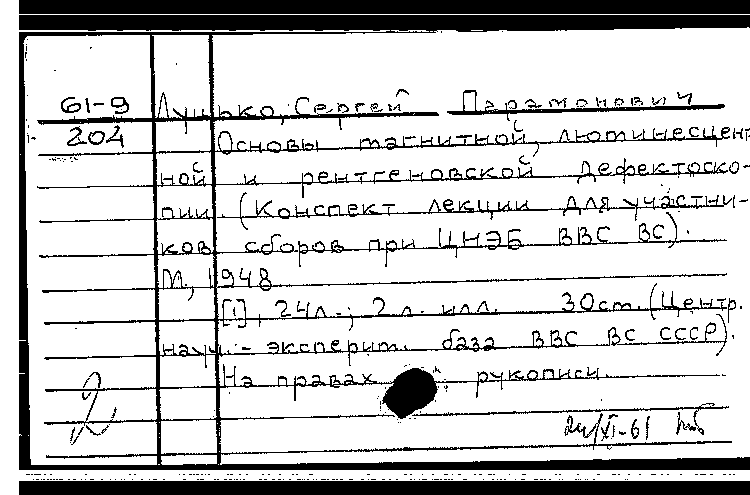 61-9 Луцько, Сергей Парамонович
204 Основы магнитной, люминесцент
ной и рентгеновской дефектоско-
пии. (Конспект лекции для участни-
ков сборов при ЦНЭБ ВВС ВС).
М, 1948
[1], 24л.; 2 л. илл. 30 см. (Центр.
науч.-эксперим. база ВВС ВС СССР).
На правах рукописи.
2
24/XI-61